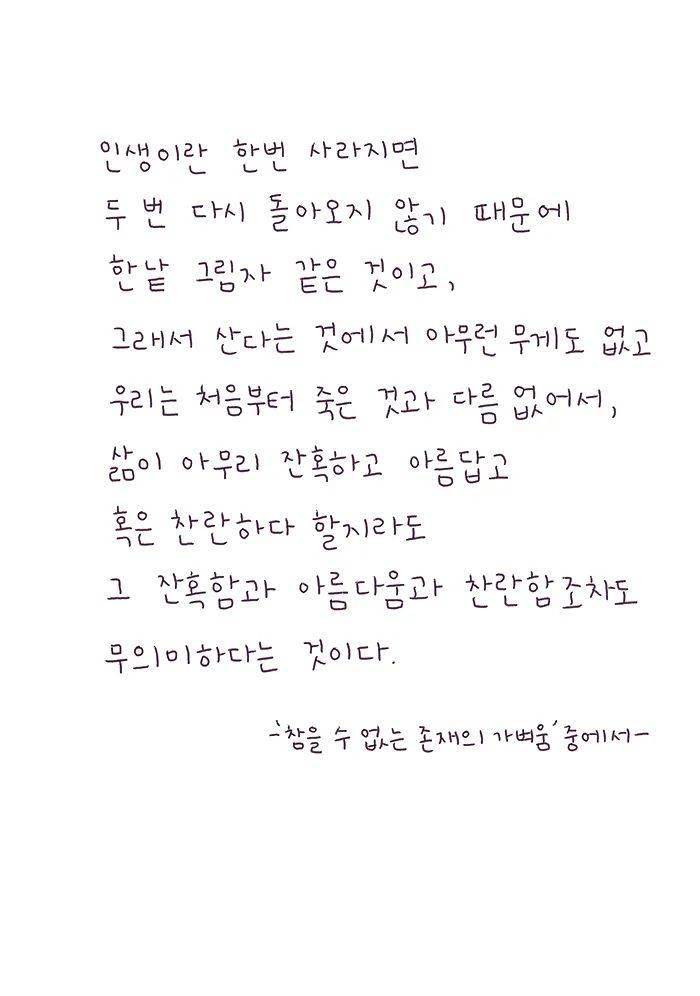 인생이란 한번 사라지면
두 번 다시 돌아오지 않기 때문에
한낱 그림자 같은 것이고,
그래서 산다는 것에서 아무런 무게도 없고
우리는 처음부터 죽은 것과 다름 없어서,
삶이 아무리 잔혹하고 아름답고
혹은 찬란하다 할지라도
그 잔혹함과 아름다움과 찬란함조차도
무의미하다는 것이다.
-'참을 수 없는 존재의 가벼움' 중에서-